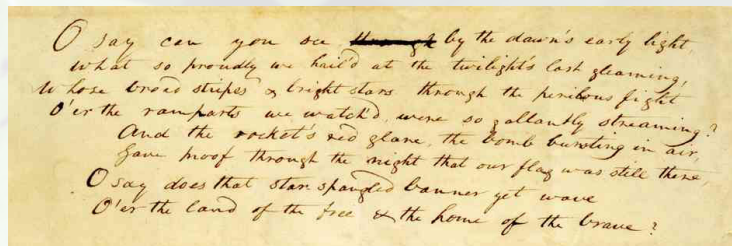 O say can you see through by the dawn's early light,
What so proudly we hail'd at the twilight's last gleaming,
Whose broad stripes & bright stars through the perilous fight
O'er the ramparts we watch'd, were so gallantly streaming?
And the rocket's red glare, the bomb bursting in air,
Gave proof through the night that our flag was still there,
O say does that star spangled banner yet wave
O'er the land of the free & the home of the brave?